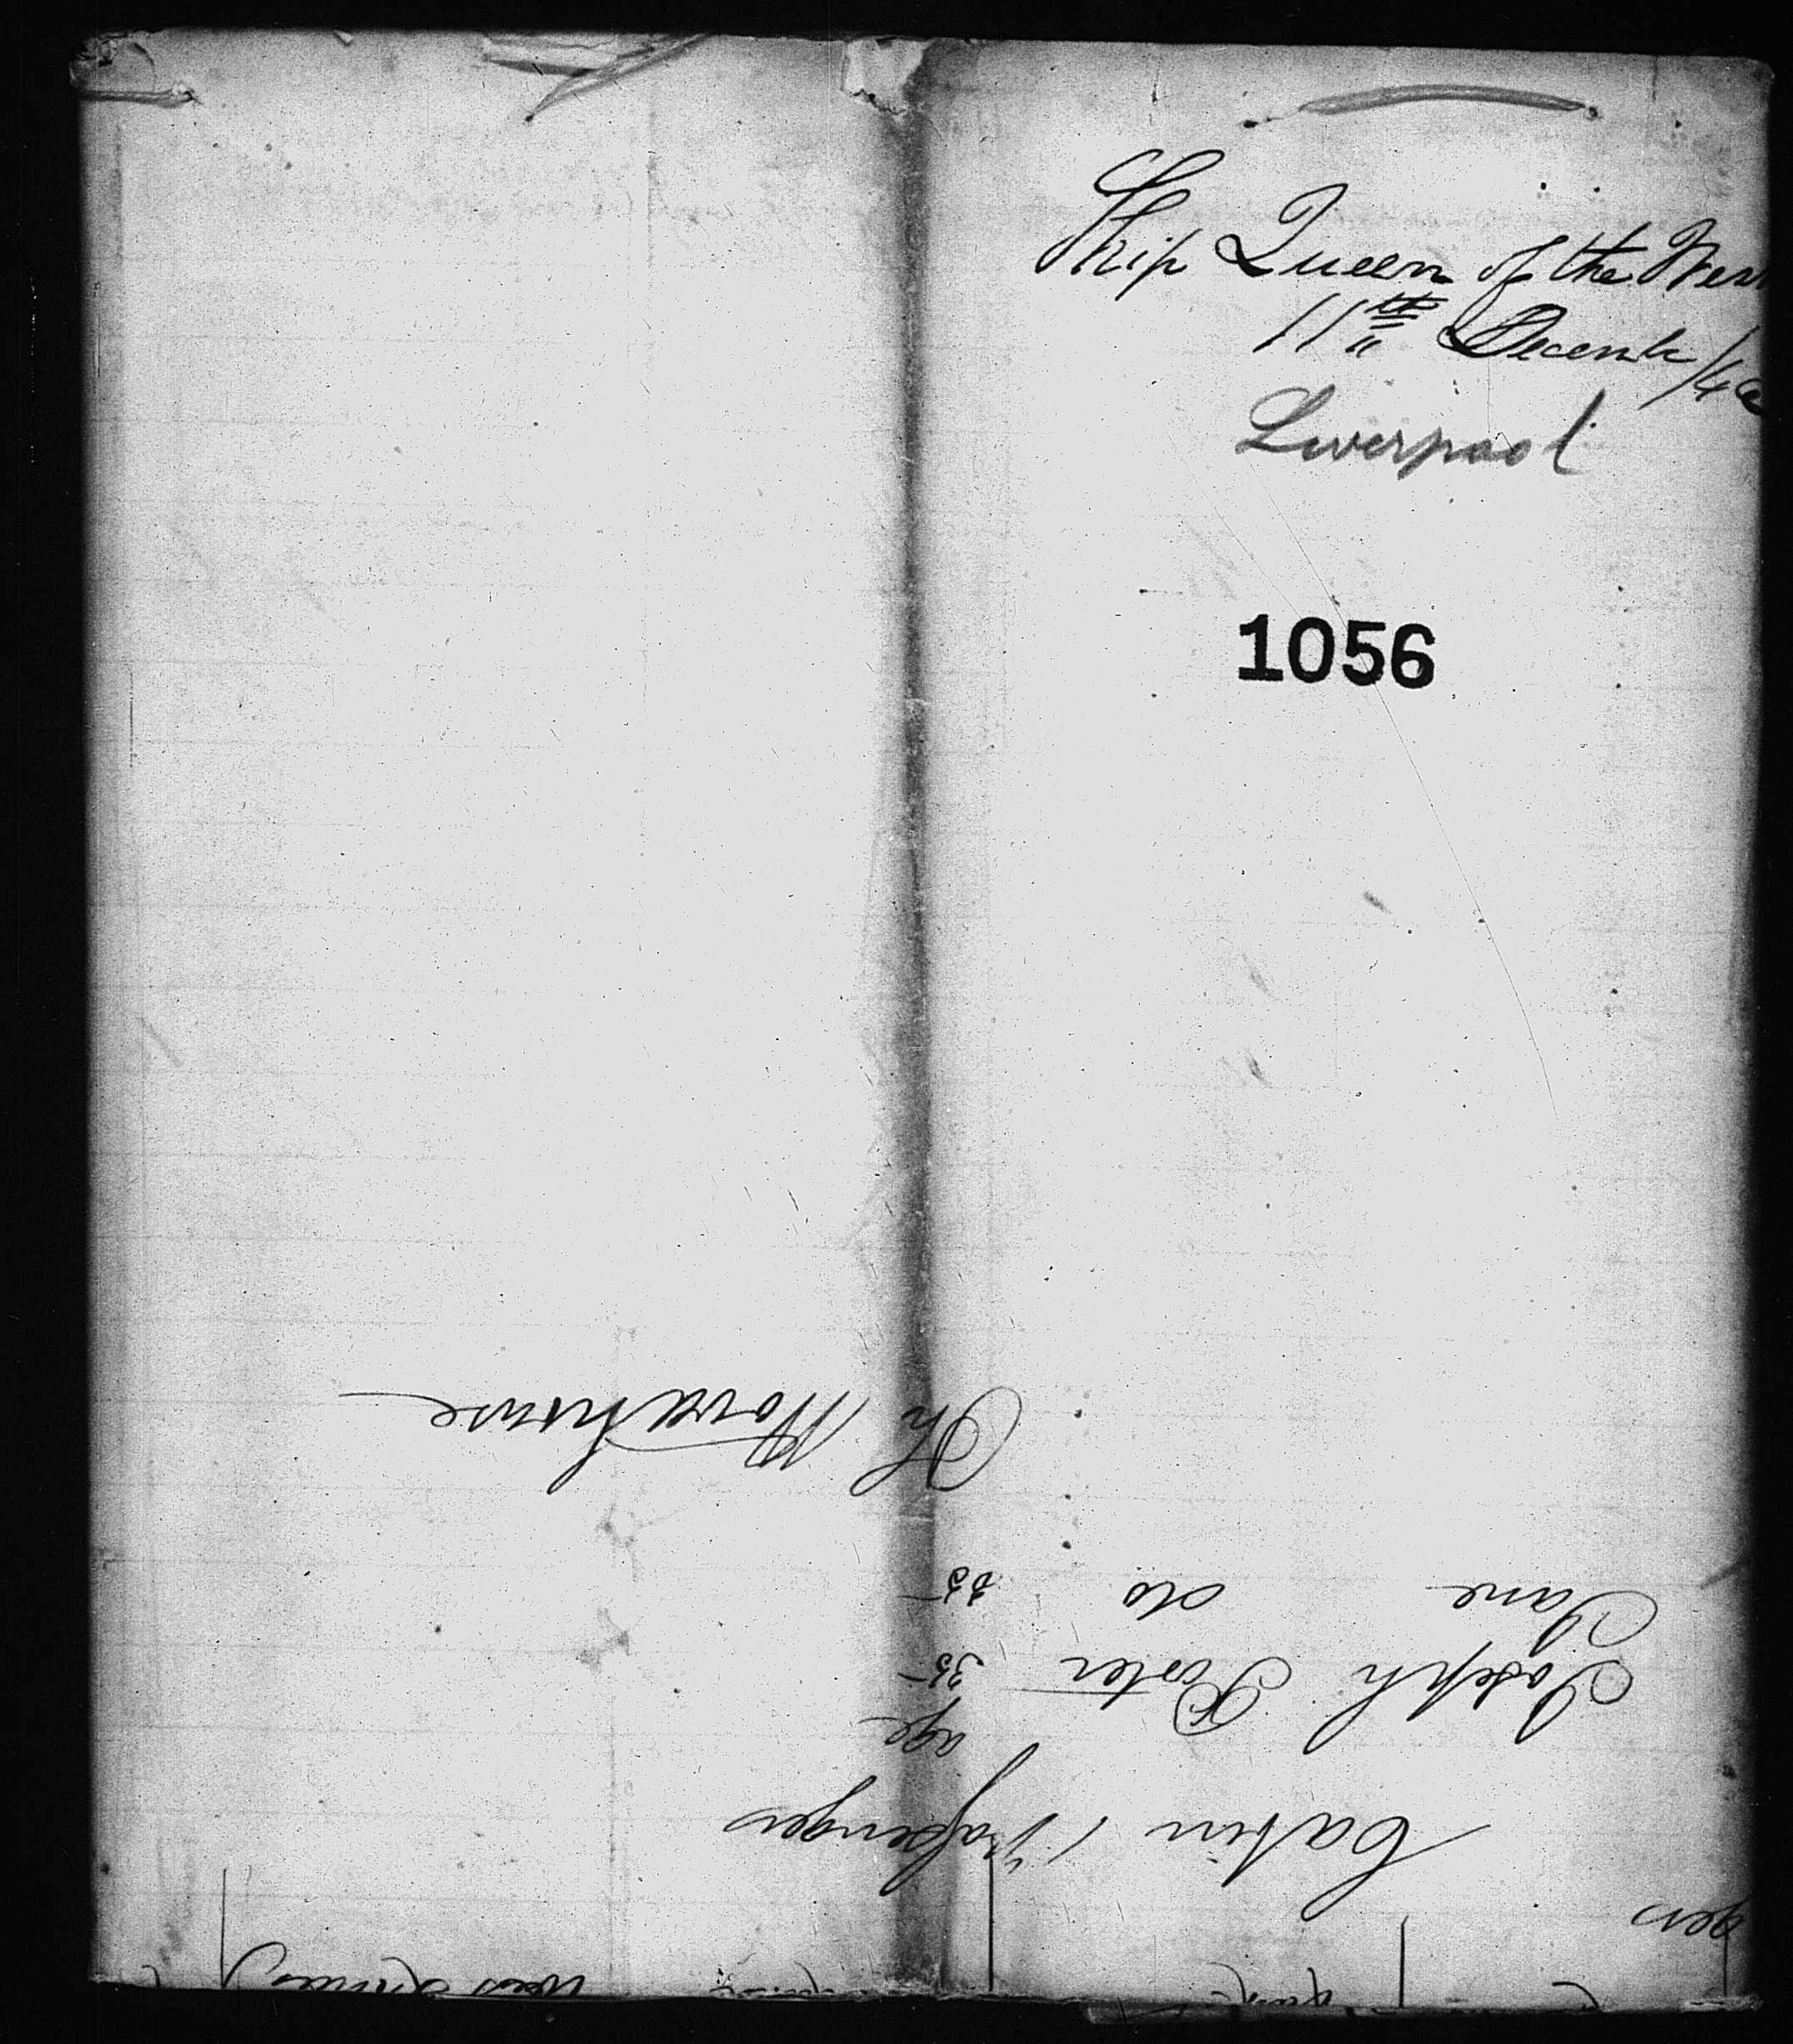 Ship Queen of the West
11th Decemb /46
Liverpool
1056
Cabin Passenger
age
Joseph Porter 35
Jane do 35